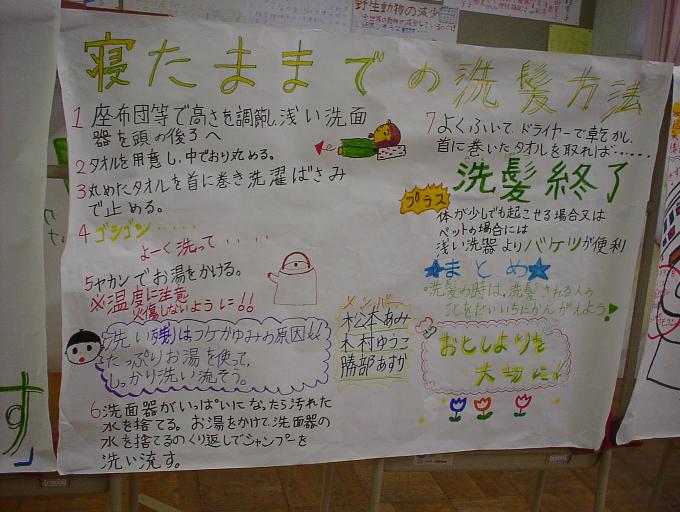 野生動物の減少
寝たままでの洗髪方法
1 座布団等で高さを調節し、浅い洗面
器を頭の後ろへ
2 タオルを用意し、中でおり丸める。
3 丸めたタオルを首に巻き洗濯ばさみ
で止める。
4 ゴシゴシ・・・・・
よーく洗って・・・・
5 ヤカンでお湯をかける。
※温度に注意
火傷しないように!!
洗い残りは、フケかゆみの原因!!
たっぷりお湯を使って、
しっかり洗い流そう。
6 洗面器がいっぱいになったら汚れた
水を捨てる。お湯をかけて、洗面器の
水を捨てるのくり返しでシャンプーを
洗い流す。
7 よくふいて、ドライヤーで乾かし、
首に巻いたタオルを取れば・・・・・・
洗髪終了
プラス
体が少しでも起こせる場合又は
ベットの場合には
浅い洗器よりバケツが便利
★まとめ★
洗髪の時は、洗髪される人の
ことをだいいちにかんがえよう!
メンバー
松本あみ
木村ゆうこ
勝部あすか
おとしよりを
大切に。
す」